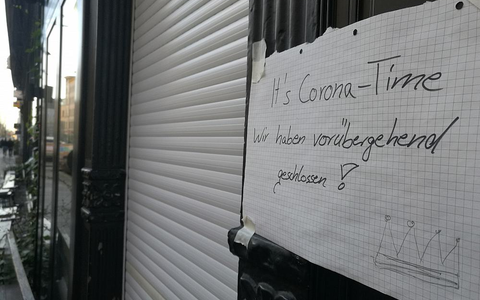 It's Corona-Time
Wir haben vorübergehend
geschlossen !